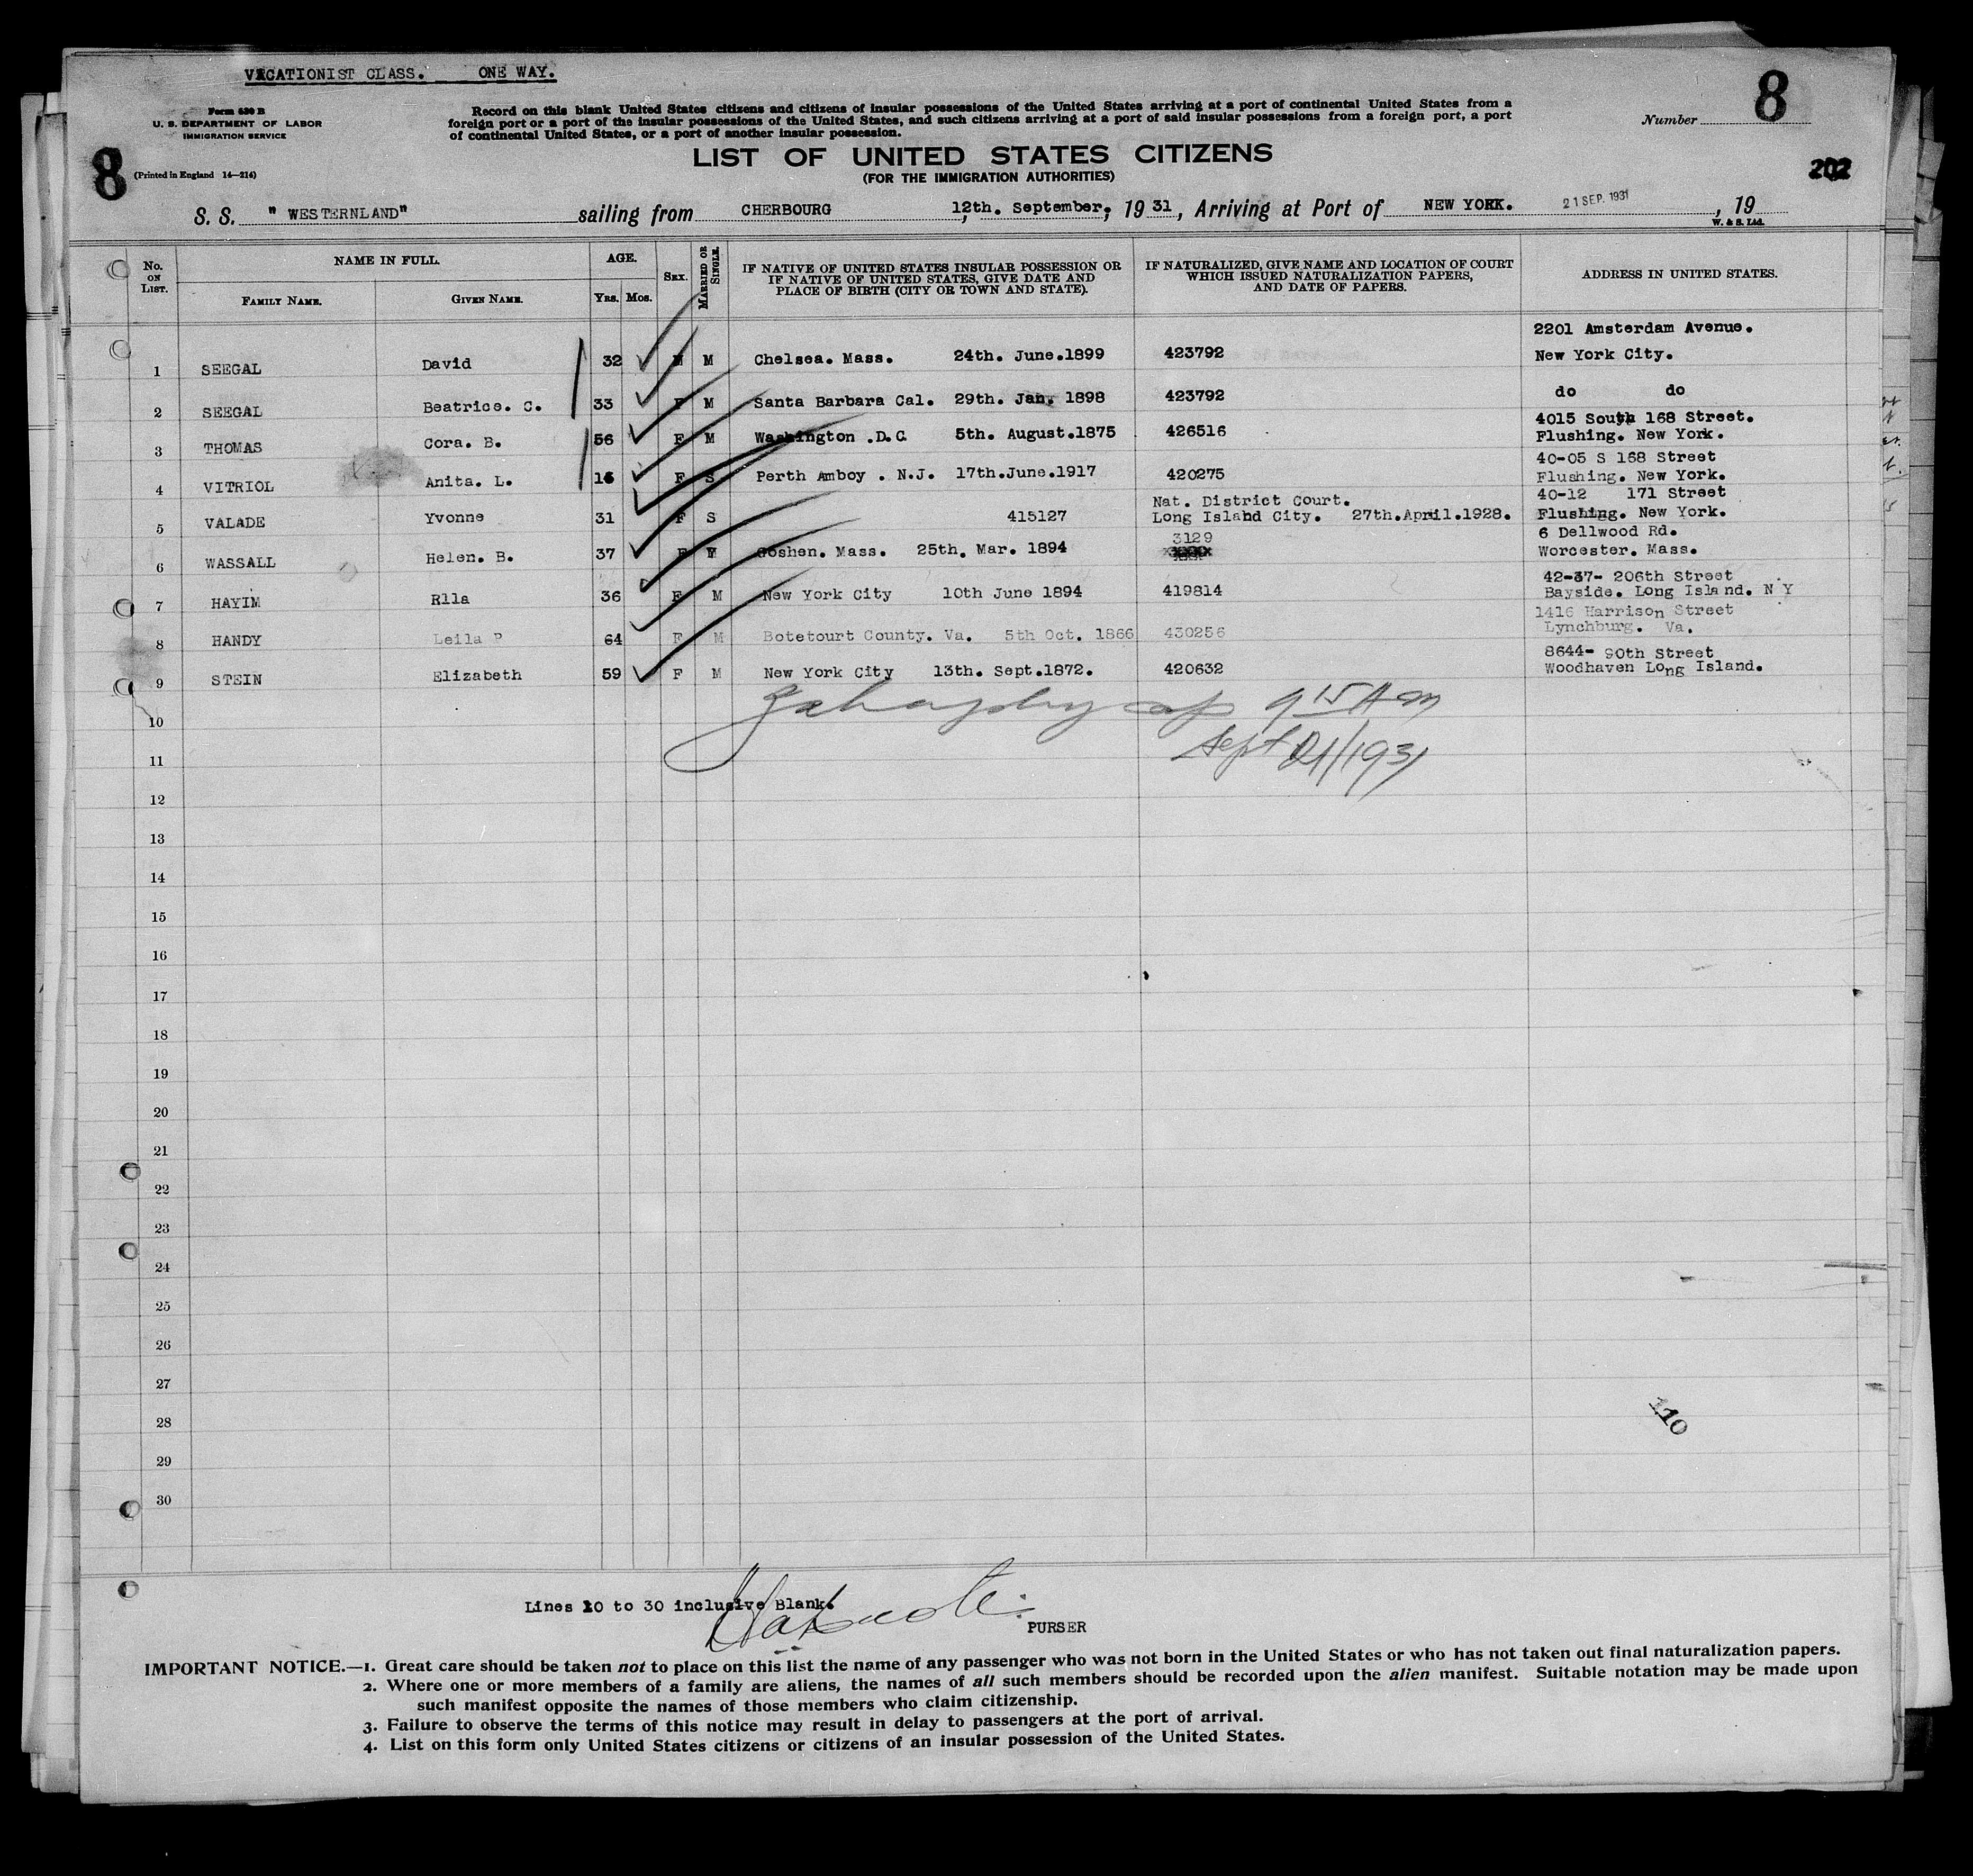 VACATIONIST CLASS. ONE WAY.
8
Form 630 B
U. S. DEPARTMENT OF LABOR
IMMIGRATION SERVICE
Record on this blank United States citizens and citizens of insular possessions of the United States arriving at a port of continental United States from a
foreign port or a port of the insular possessions of the United States, and such citizens arriving at a port of said insular possessions from a foreign port, a port
of continental United States, or a port of another insular possession.
Number
8
(Printed in England 14—214)
LIST OF UNITED STATES CITIZENS
(FOR THE IMMIGRATION AUTHORITIES)
202
S. S. " WESTERNLAND" sailing from CHERBOURG 12th. September, 19 31, Arriving at Port of NEW YORK. 21 SEP. 1931, 19
W. & S. Ltd.
No. ON LIST. NAME IN FULL. AGE. SEX. MARRIED OR SINGLE. IF NATIVE OF UNITED STATES INSULAR POSSESSION OR IF NATIVE OF UNITED STATES, GIVE DATE AND PLACE OF BIRTH (CITY OR TOWN AND STATE). IF NATURALIZED, GIVE NAME AND LOCATION OF COURT WHICH ISSUED NATURALIZATION PAPERS, AND DATE OF PAPERS. ADDRESS IN UNITED STATES.
FAMILY NAME. GIVEN NAME. YRS. MOS.
2201 Amsterdam Avenue.
1 SEEGAL David 32 M M Chelsea. Mass. 24th. June.1899 423792 New York City.
2 SEEGAL Beatrice. C. 33 F M Santa Barbara Cal. 29th. Jan. 1898 423792 do do
4015 South 168 Street.
3 THOMAS Cora. B. 56 F M Washington .D.C. 5th. August.1875 426516 Flushing. New York.
40-05 S 168 Street
4 VITRIOL Anita. L. 14 F S Perth Amboy . N.J. 17th.June.1917 420275 Flushing. New York.
Nat. District Court. 40-12 171 Street
5 VALADE Yvonne 31 F S 415127 Long Island City. 27th.April.1928. Flushing. New York.
3129 6 Dellwood Rd.
6 WASSALL Helen. B. 37 F M Goshen. Mass. 25th. Mar. 1894 Worcester. Mass.
42-37- 206th Street
7 HAYIM Rlla 36 F M New York City 10th June 1894 419814 Bayside. Long Island. N Y
1416 Harrison Street
8 HANDY Leila P 64 F M Botetourt County. Va. 5th Oct. 1866 430256 Lynchburg. Va.
8644- 90th Street
9 STEIN Elizabeth 59 F M New York City 13th. Sept.1872. 420632 Woodhaven Long Island.
10 9 15 AM
11 Sept 21/1931
12
13
14
15
16
17
18
19
20
21
22
23
24
25
26
27
28
29
30
110
Lines 10 to 30 inclusive Blank.
PURSER
IMPORTANT NOTICE.—1. Great care should be taken not to place on this list the name of any passenger who was not born in the United States or who has not taken out final naturalization papers.
2. Where one or more members of a family are aliens, the names of all such members should be recorded upon the alien manifest. Suitable notation may be made upon
such manifest opposite the names of those members who claim citizenship.
3. Failure to observe the terms of this notice may result in delay to passengers at the port of arrival.
4. List on this form only United States citizens or citizens of an insular possession of the United States.